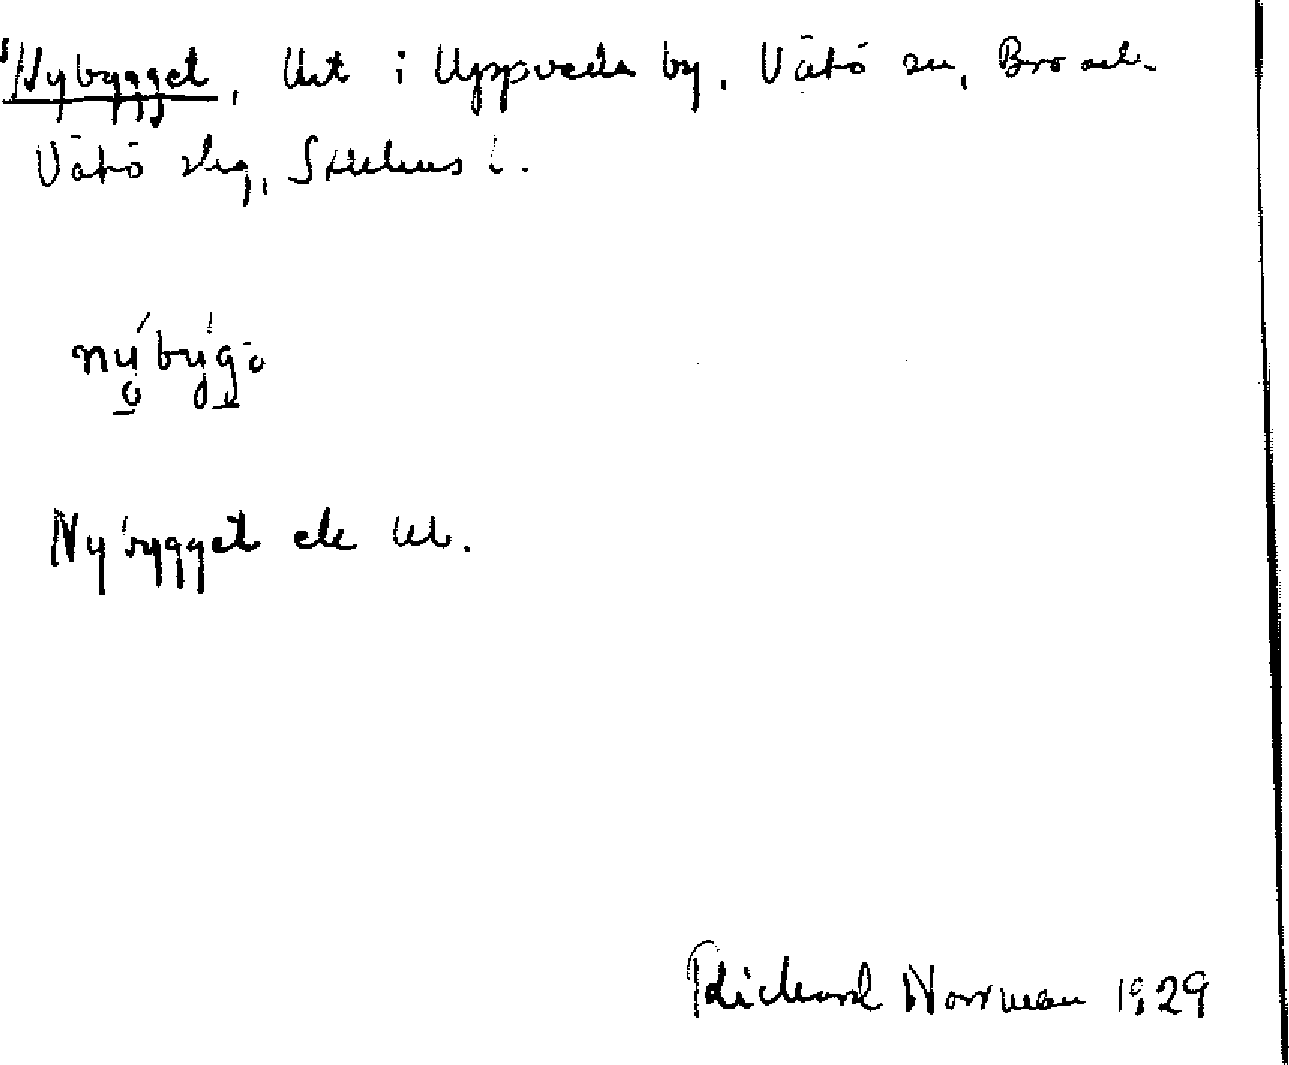 Nybygget, Urt i Uppveda by, Vätö sn, Bro och
Vätö skg, Sthlms l.
nybygo
Nybygget ek kb.
Richard Norrman 1929